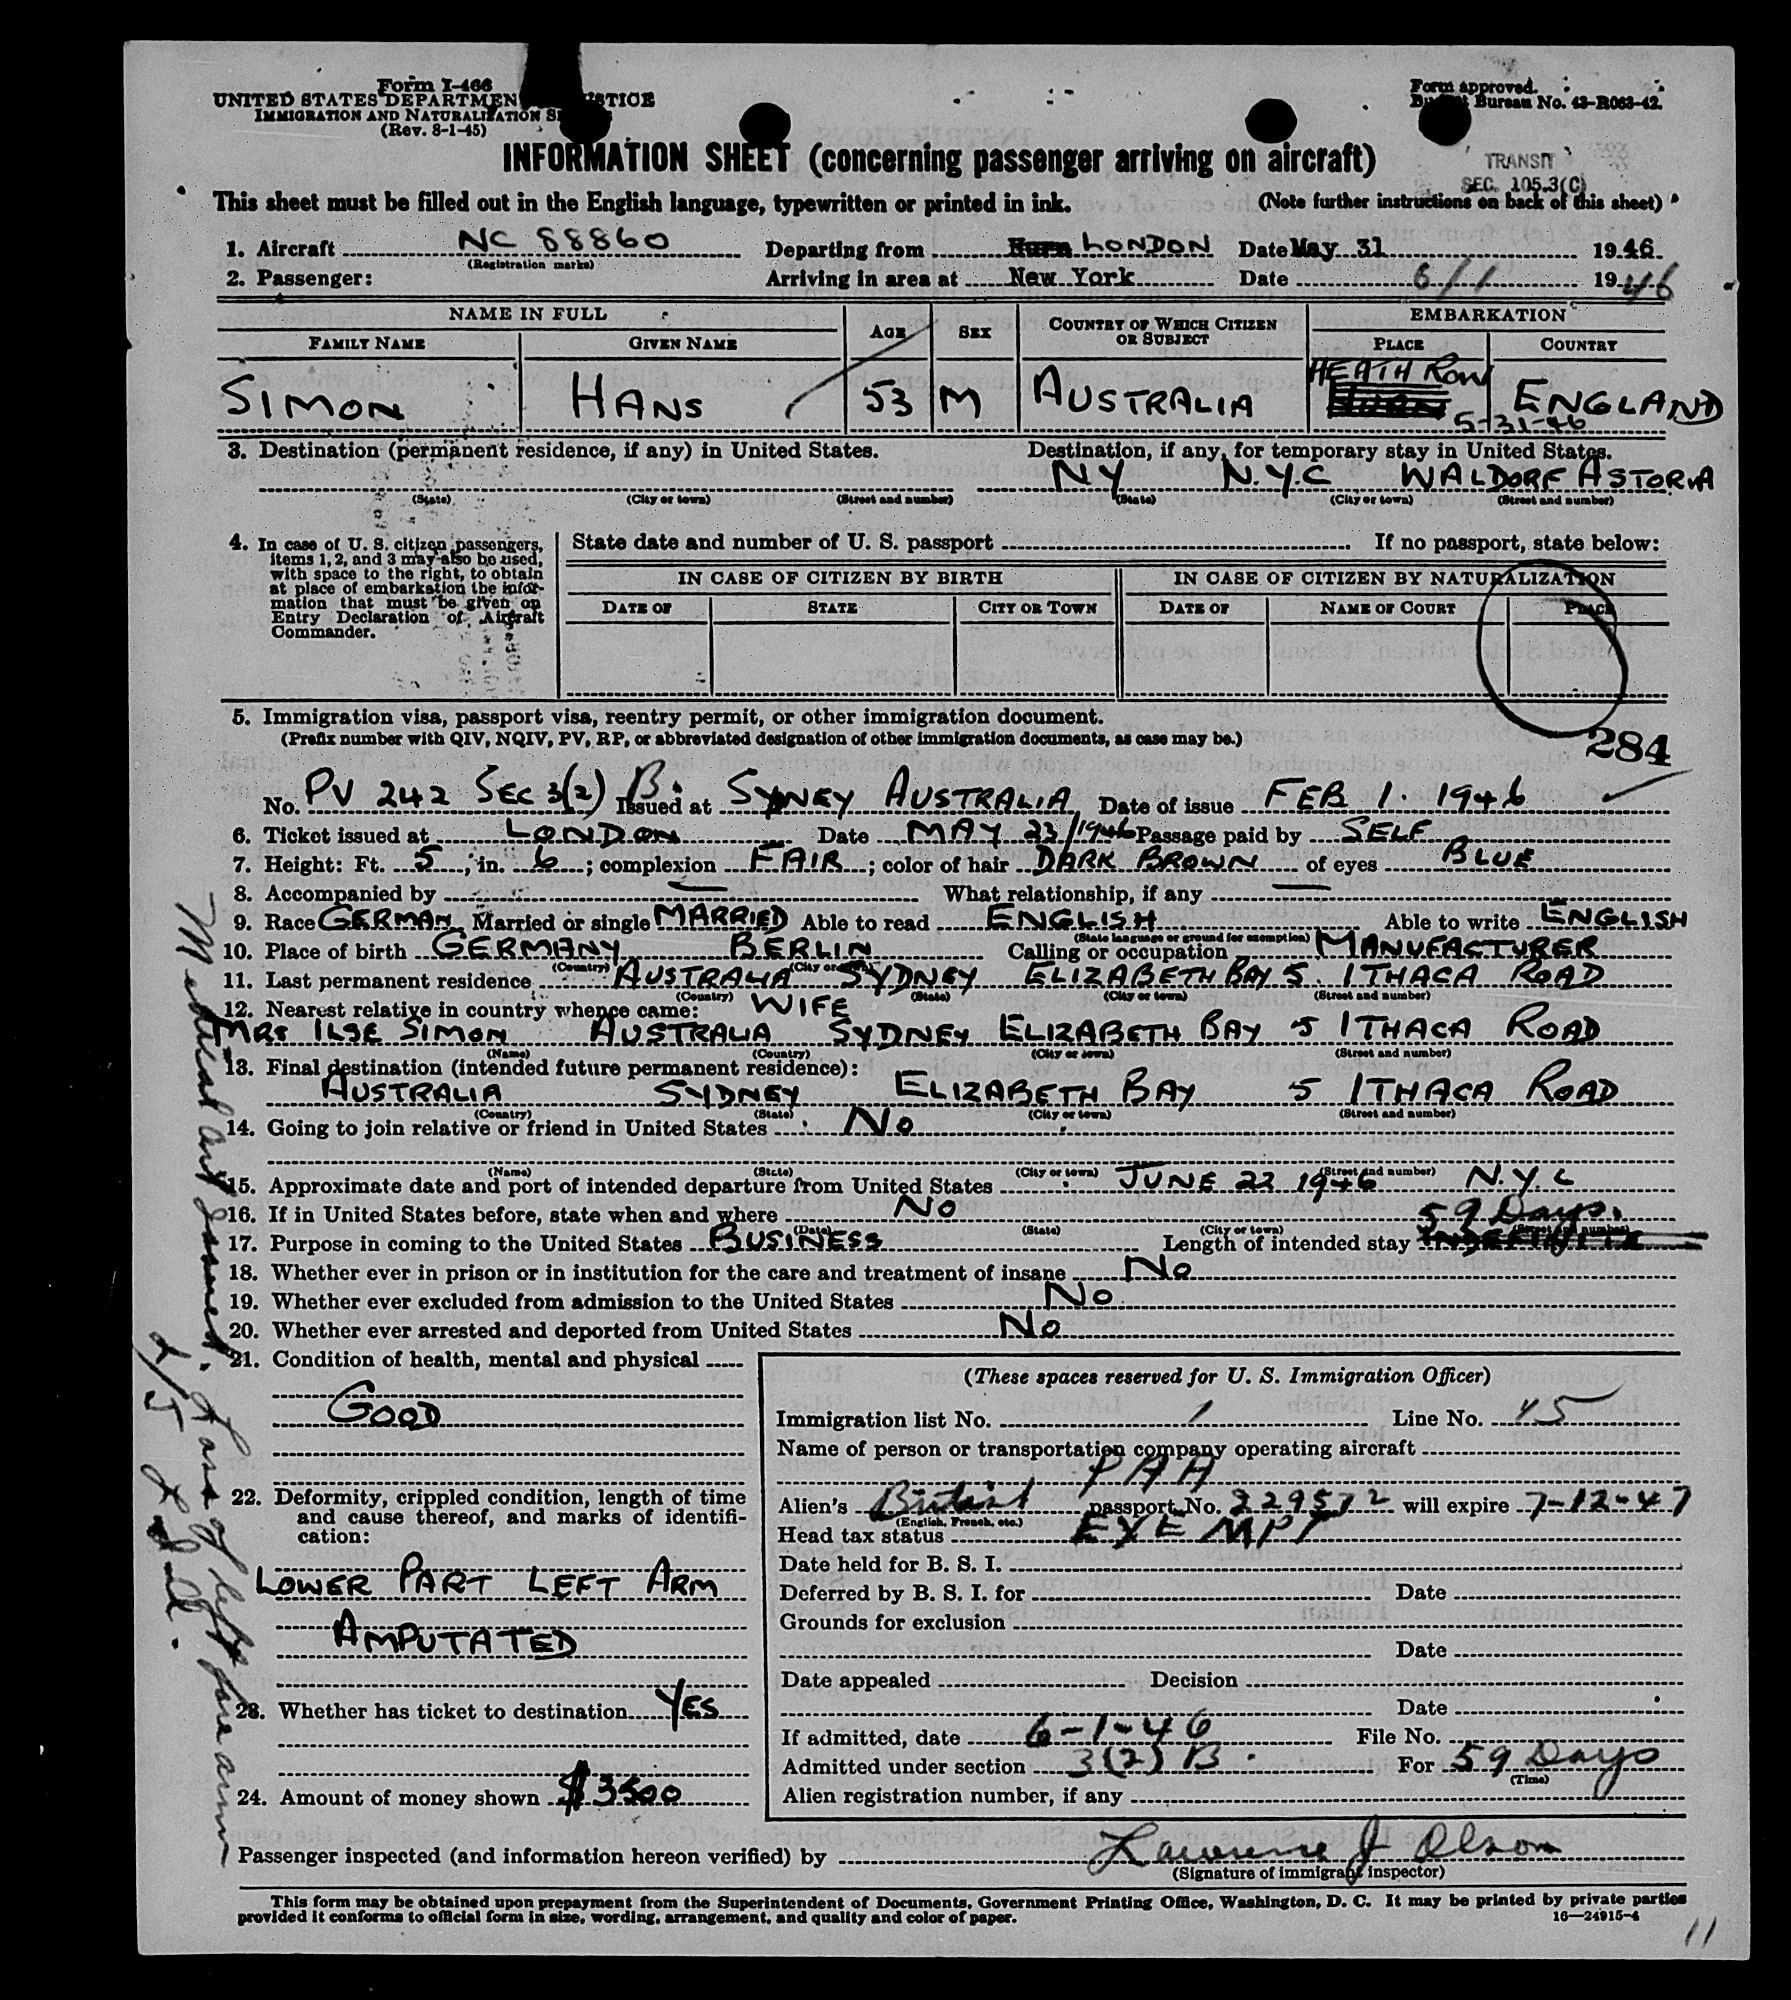 Form I-466
UNITED STATES DEPARTMENT OF JUSTICE
IMMIGRATION AND NATURALIZATION
(Rev. 8-1-45)
Form approved.
Bureau No. 43-R063-42.
INFORMATION SHEET (concerning passenger arriving on aircraft)
TRANSIT
SEC. 105.3(C)
This sheet must be filled out in the English language, typewritten or printed in ink. (Note further instructions on back of this sheet)
1. Aircraft NC 88860 Departing from LONDON Date May 31 1946
(Registration marks)
2. Passenger: Arriving in area at New York Date 6/1 1946
NAME IN FULL AGE SEX COUNTRY OF WHICH CITIZEN OR SUBJECT EMBARKATION
FAMILY NAME GIVEN NAME PLACE COUNTRY
SIMON HANS 53 M AUSTRALIA HEATH ROW ENGLAND
5-31-46
3. Destination (permanent residence, if any) in United States. Destination, if any, for temporary stay in United States.
NY N.Y.C WALDORF ASTORIA
(State) (City or town) (Street and number) (State) (City or town) (Street and number)
4. In case of U. S. citizen passengers, items 1, 2, and 3 may also be used, with space to the right, to obtain at place of embarkation the information that must be given on Entry Declaration of Aircraft Commander.
State date and number of U. S. passport If no passport, state below:
IN CASE OF CITIZEN BY BIRTH IN CASE OF CITIZEN BY NATURALIZATION
DATE OF STATE CITY OR TOWN DATE OF NAME OF COURT PLACE
5. Immigration visa, passport visa, reentry permit, or other immigration document.
(Prefix number with QIV, NQIV, PV, RP, or abbreviated designation of other immigration documents, as case may be.)
284
No. PV 242 SEC 3(2) B. Issued at SYDNEY AUSTRALIA Date of issue FEB 1. 1946
6. Ticket issued at LONDON Date MAY 23/1946 Passage paid by SELF
7. Height: Ft. 5, in. 6; complexion FAIR; color of hair DARK BROWN of eyes BLUE
8. Accompanied by — What relationship, if any —
9. Race GERMAN Married or single MARRIED Able to read ENGLISH Able to write ENGLISH
(State language or ground for exemption)
10. Place of birth GERMANY BERLIN Calling or occupation MANUFACTURER
(Country) (City or town)
11. Last permanent residence AUSTRALIA SYDNEY ELIZABETH BAY 5. ITHACA ROAD
(Country) (State) (City or town) (Street and number)
12. Nearest relative in country whence came: WIFE
MRS ILSE SIMON AUSTRALIA SYDNEY ELIZABETH BAY 5 ITHACA ROAD
(Name) (Country) (City or town) (Street and number)
13. Final destination (intended future permanent residence):
AUSTRALIA SYDNEY ELIZABETH BAY 5 ITHACA ROAD
(Country) (State) (City or town) (Street and number)
14. Going to join relative or friend in United States No
(Name) (State) (City or town) (Street and number)
15. Approximate date and port of intended departure from United States JUNE 22 1946 N.Y.C
16. If in United States before, state when and where No
(Date) (State) (City or town) (Street and number)
17. Purpose in coming to the United States BUSINESS Length of intended stay 59 Days. INDEFINITE
18. Whether ever in prison or in institution for the care and treatment of insane No
19. Whether ever excluded from admission to the United States No
20. Whether ever arrested and deported from United States No
21. Condition of health, mental and physical
GOOD
22. Deformity, crippled condition, length of time and cause thereof, and marks of identification:
LOWER PART LEFT ARM
AMPUTATED
23. Whether has ticket to destination YES
24. Amount of money shown $3500
(These spaces reserved for U. S. Immigration Officer)
Immigration list No. 1 Line No. 15
Name of person or transportation company operating aircraft
PAA
Alien's British passport No. 229572 will expire 7-12-47
(English, French, etc.)
Head tax status EXEMPT
Date held for B. S. I.
Deferred by B. S. I. for Date
Grounds for exclusion
Date
Date appealed Decision
Date
If admitted, date 6-1-46 File No.
Admitted under section 3(2) B. For 59 Days
(Time)
Alien registration number, if any
Passenger inspected (and information hereon verified) by Lawrence J Olson
(Signature of immigrant inspector)
This form may be obtained upon prepayment from the Superintendent of Documents, Government Printing Office, Washington, D. C. It may be printed by private parties
provided it conforms to official form in size, wording, arrangement, and quality and color of paper.
16—24915-4
11
Medical cert issued. Loss of left fore arm